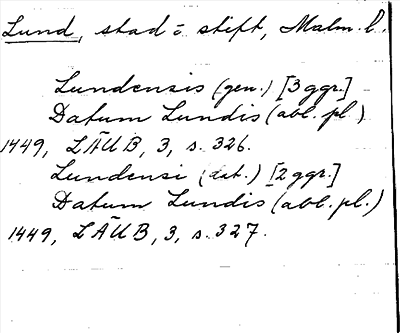 Lund, stad o stift, Malm. l.
Lundensis (gen.) [3 ggr.]
Datum Lundis (abl. pl.)
1449, LÄUB, 3, s. 326.
Lundensi (dat.) [2 ggr.]
Datum Lundis (abl. pl.)
1449, LÄUB, 3, s. 327.